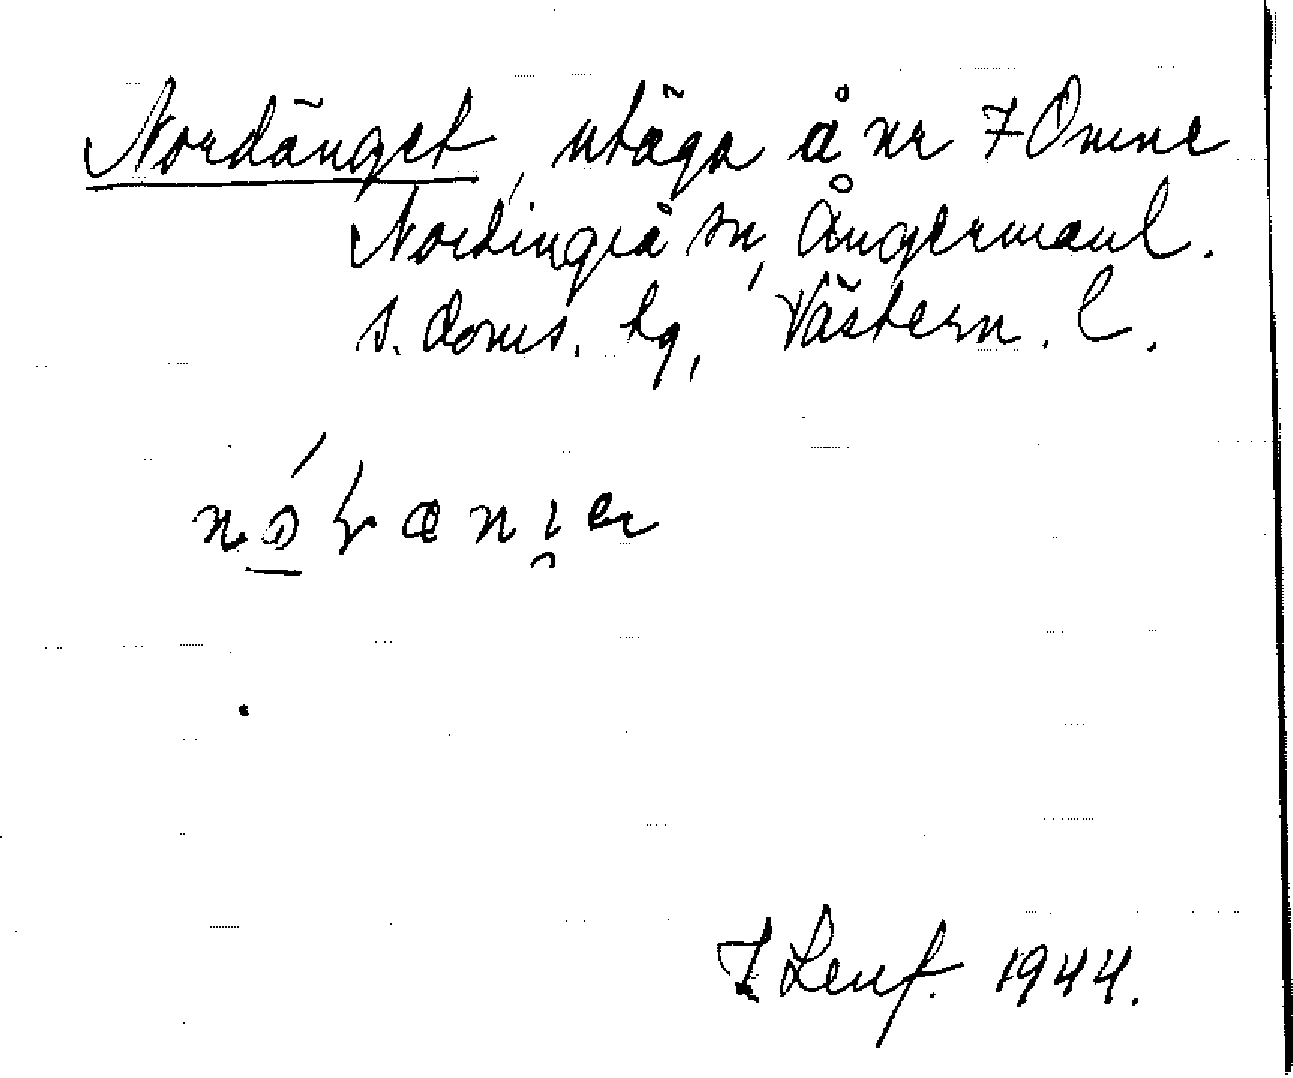 Nordänget, utäga å nr 7 Omne
Nordingrå sn, Ångermanl.
s. doms. tg, Västern. l.
J Lenf. 1944.